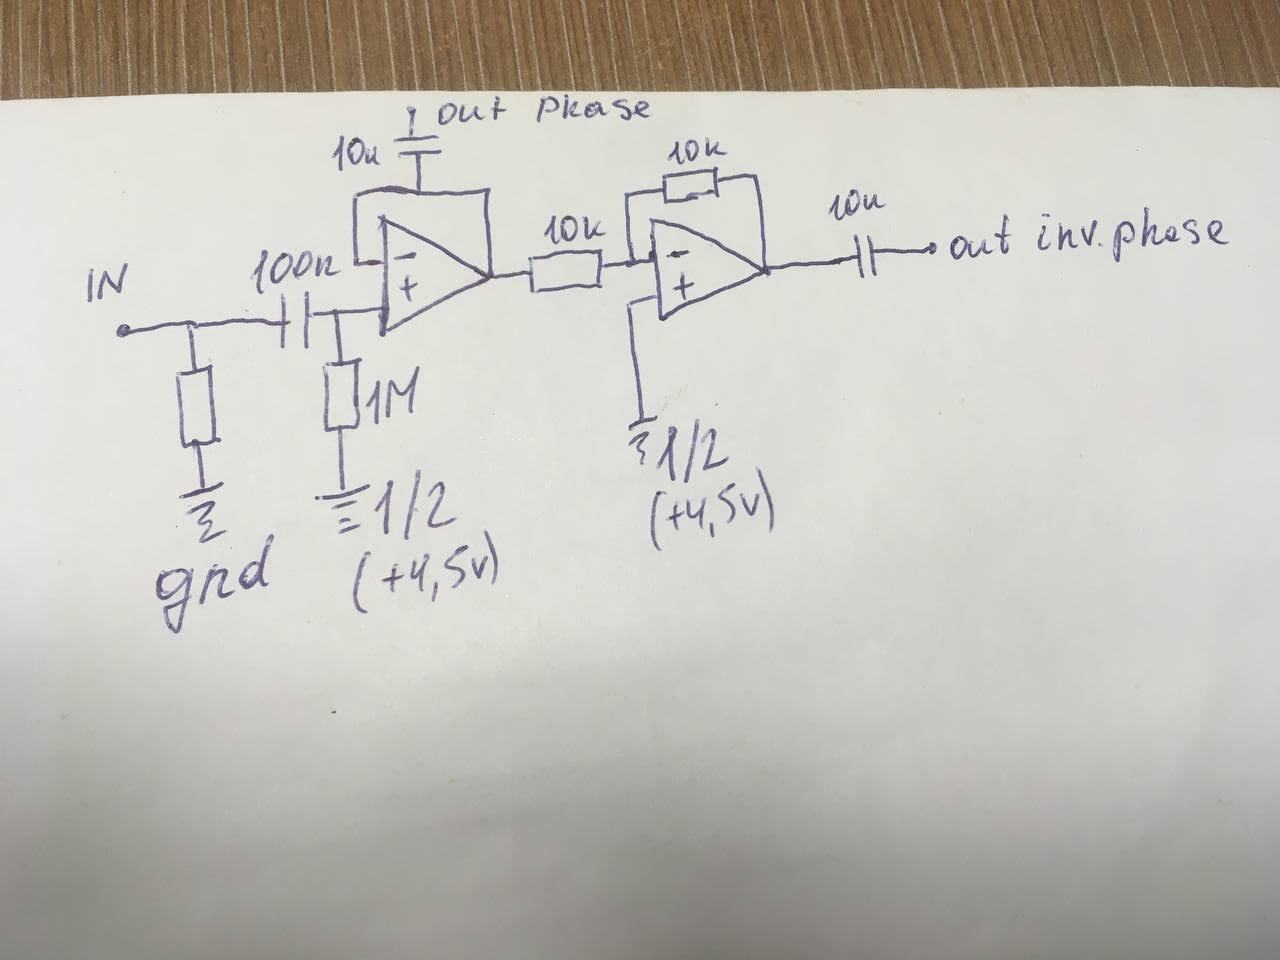 out phase
10u
10k
10k
10u
out inv. phase
IN
100n
-
+
-
+
1M
1/2
(+4,5v)
1/2
(+4,5v)
gnd